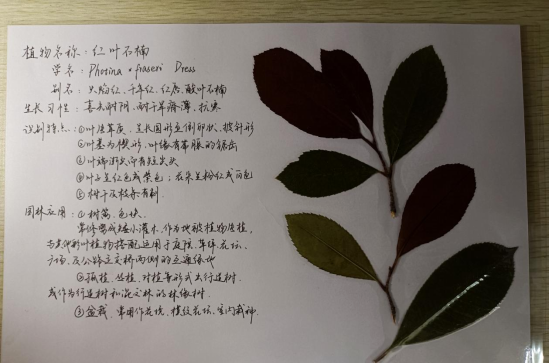 植物名称：红叶石楠
学名：Photinia × fraseri Dress
别名：火焰红、千年红、红唇、酸叶石楠
生长习性：喜光耐阴、耐干旱瘠薄、抗寒
识别特点：①叶法革质、长圆形至倒卵状、披针形
②叶基为楔形，叶缘有带腺的锯齿
③叶端渐尖而有短尖头
④叶子呈红色或紫色；在末呈粉红或白色
⑤树干及枝条有刺.
园林应用：①树篱、色块.
常修剪成矮小灌木，作为地被植物片植，
与其他彩叶植物搭配运用于庭院、草坪、花坛、
广场、及公路立交桥两侧的立体绿地
②孤植、丛植、对植等形式出行道树.
或作为行道树和混交林的林缘树.
③盆栽、常用作花境、模纹花坛、室内栽种.